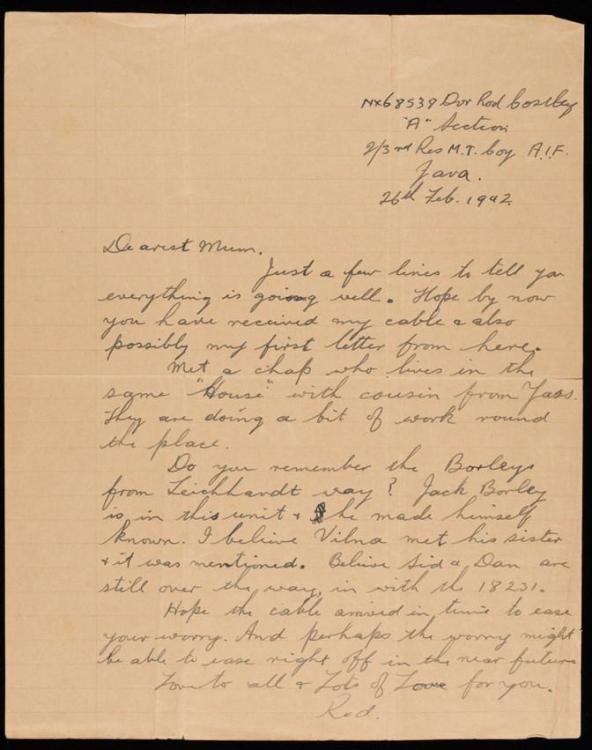 NX68539 Dvr Rod Costley
"A" Section
2/3rd Res M.T. Coy A.I.F.
Java.
26th Feb. 1942.
Dearest Mum.
Just a few lines to tell you
everything is going well. Hope by now
you have received my cable & also
possibly my first letter from here.
Met a chap who lives in the
same "House" with cousin from Yass.
They are doing a bit of work round
the place.
Do you remember the Borleys
from Leichhardt way? Jack Borley
is in this unit & he made himself
known. I believe Vilna met his sister
& it was mentioned. Believe Sid & Dan are
still over the way, in with the 18231.
Hope the cable arrived in time to ease
your worry. And perhaps the worry might
be able to ease right off in the near future
Love to all & Lots of Love for you.
Rod.